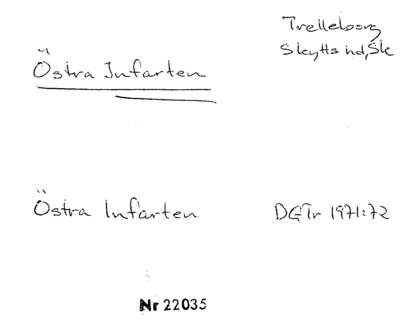 Trelleborg
Skytts hd, Sk
Östra Infarten
Östra Infarten
DGTr 1971:72
Nr 22035